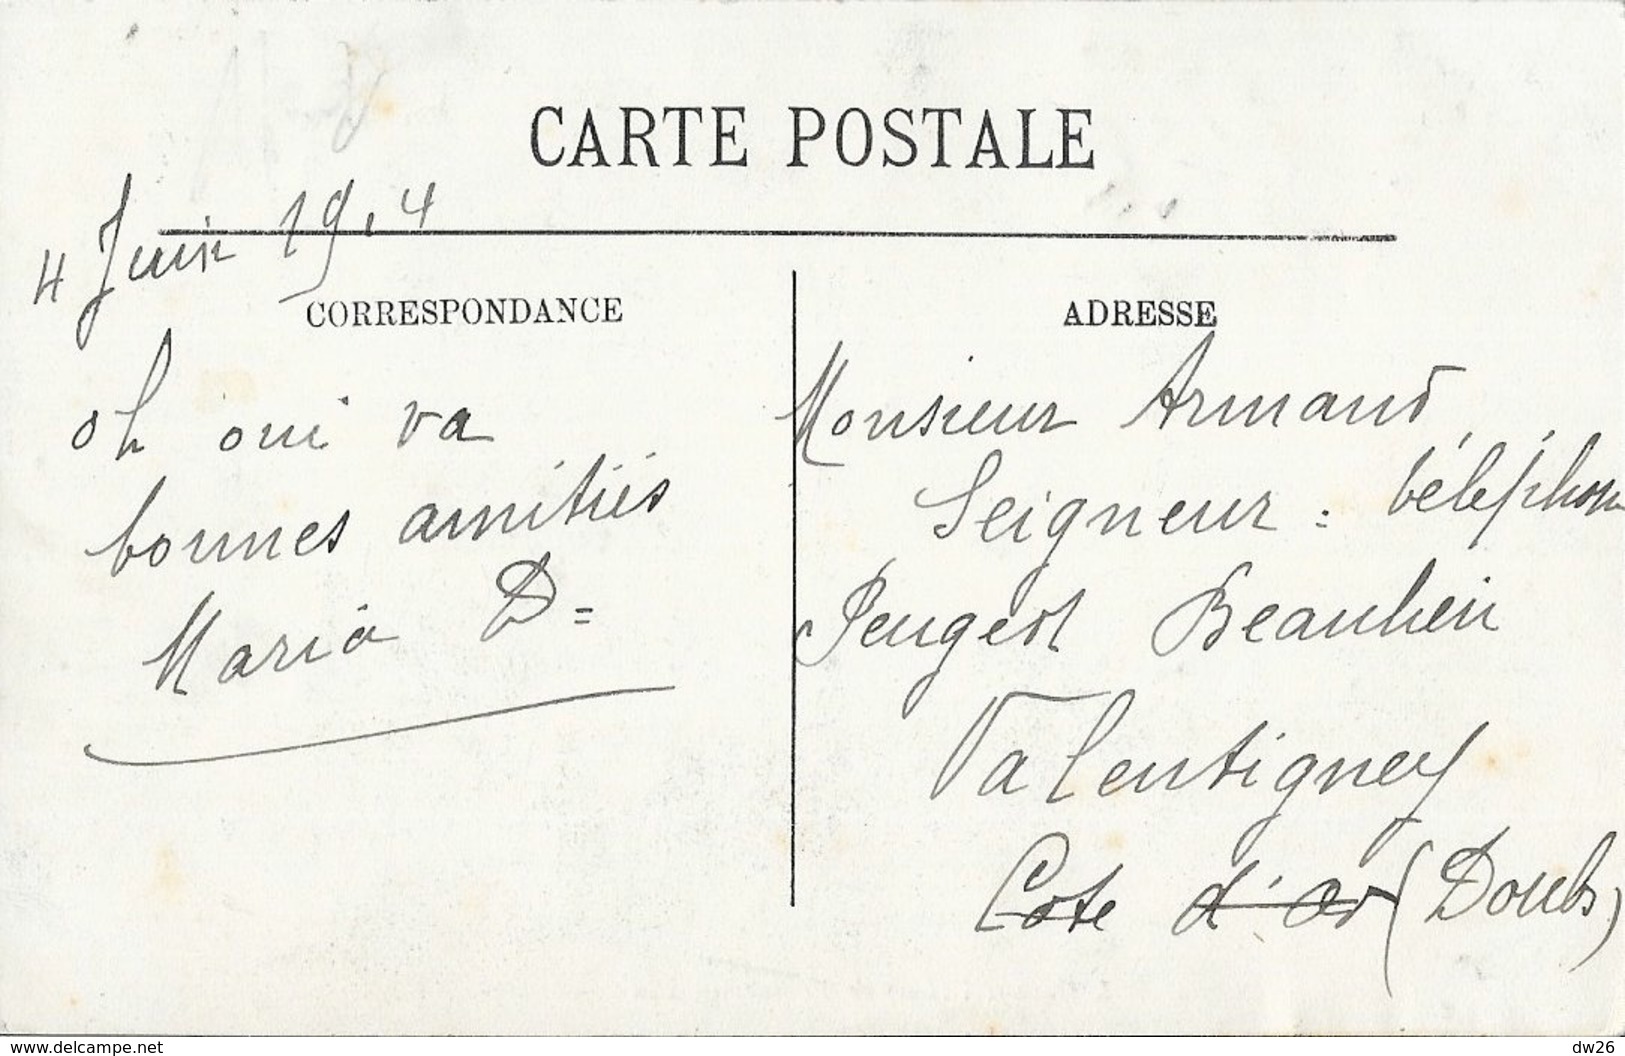 CARTE POSTALE
4 Juin 19.4
CORRESPONDANCE
oh oui va
bonnes amitiés
Maria D=
ADRESSE
Monsieur Armand
Seigneur : télephon
Peugeot Beaulieu
Valentigney
Cote d'or (Doubs)
www.delcampe.net
dw26